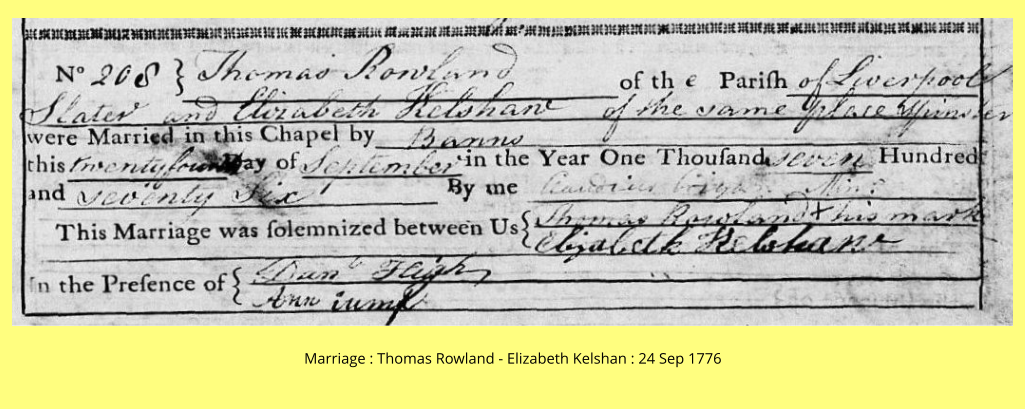 No 208 } Thomas Rowland of the Parish of Liverpool
Slater and Elizabeth Kelshaw of the same place Spinster
were Married in this Chapel by Banns
this twentyfourth Day of September in the Year One Thousand seven Hundred
and seventy Six By me Min.r
This Marriage was solemnized between Us { Thomas Rowland + his mark
Elizabeth Kelshaw
In the Presence of { Danl
Ann
Marriage : Thomas Rowland - Elizabeth Kelshan : 24 Sep 1776